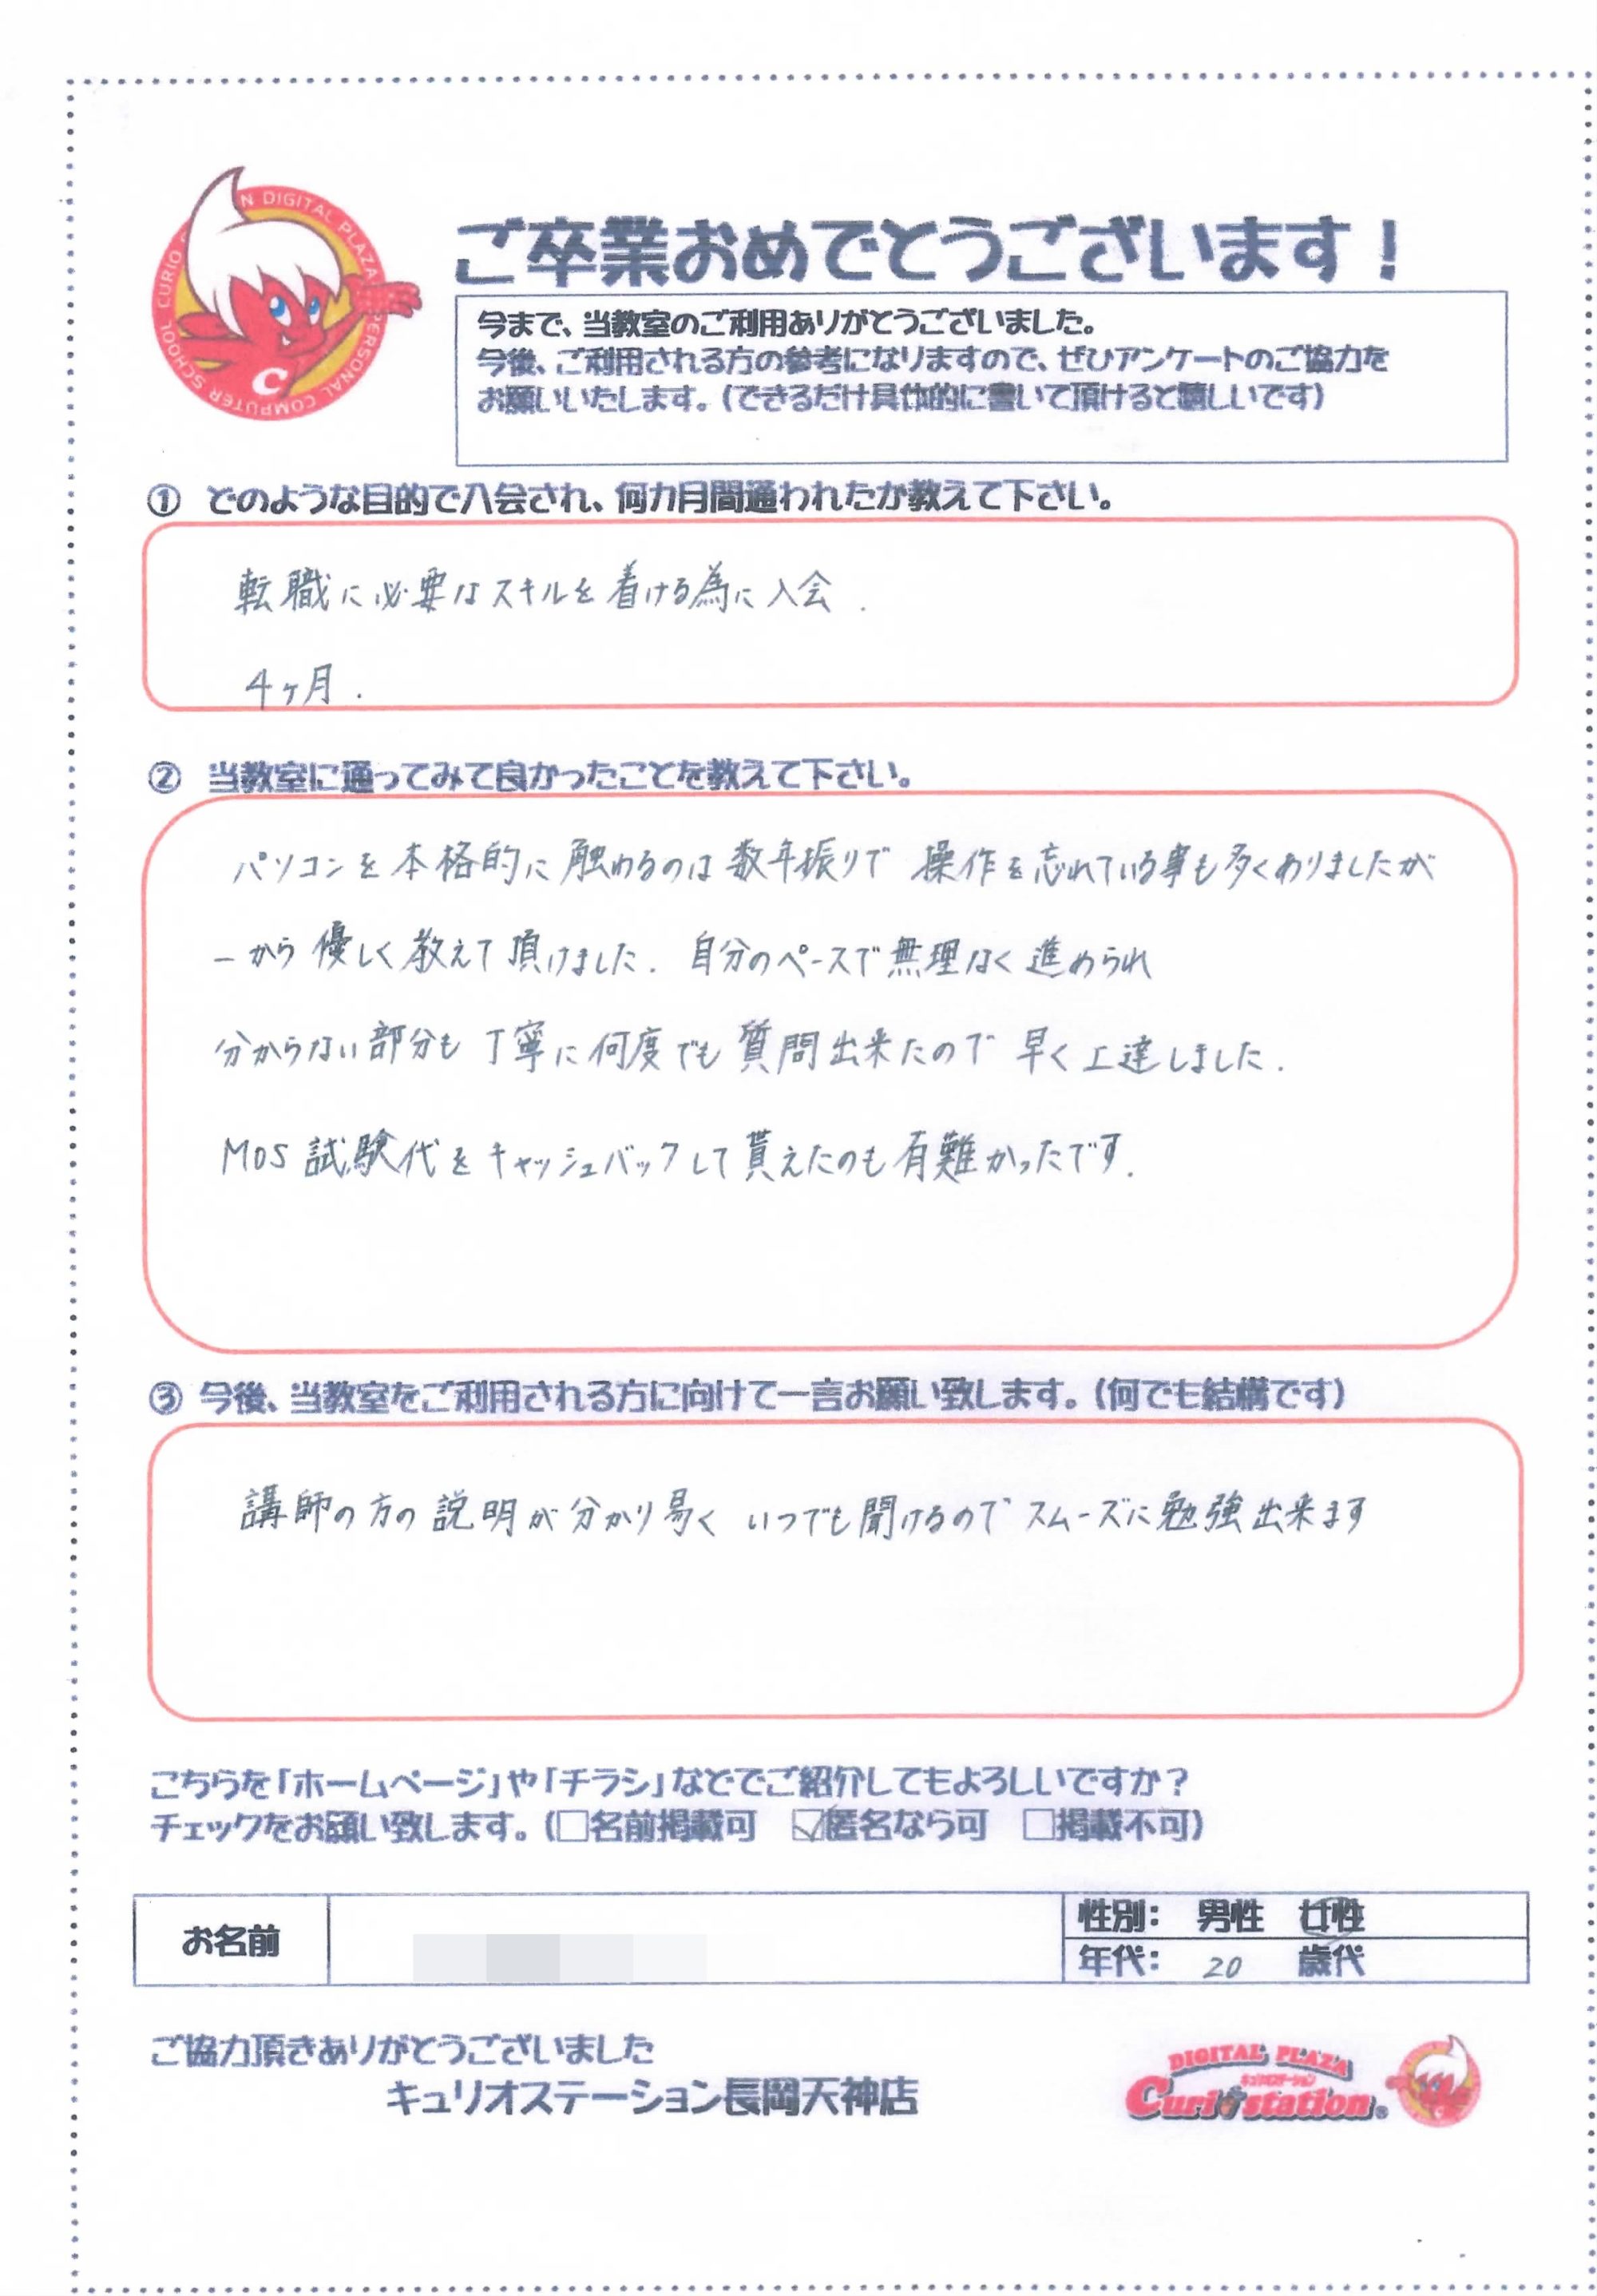 CURIO N DIGITAL PLAZA PERSONAL COMPUTER SCHOOL
C
ご卒業おめでとうございます！
今まで、当教室のご利用ありがとうございました。
今後、ご利用される方の参考になりますので、ぜひアンケートのご協力を
お願いいたします。（できるだけ具体的に書いて頂けると嬉しいです）
① どのような目的で入会され、何カ月間通われたか教えて下さい。
転職に必要なスキルを着ける為に入会.
4ヶ月.
② 当教室に通ってみて良かったことを教えて下さい。
パソコンを本格的に触わるのは数年振りで 操作を忘れている事も多くありましたが
一から優しく教えて頂けました. 自分のペースで無理なく進められ
分からない部分も丁寧に何度でも質問出来たので 早く上達しました.
MOS試験代をキャッシュバックして貰えたのも有難かったです.
③ 今後、当教室をご利用される方に向けて一言お願い致します。（何でも結構です）
講師の方の説明が分かり易く いつでも聞けるので スムーズに勉強出来ます
こちらを「ホームページ」や「チラシ」などでご紹介してもよろしいですか？
チェックをお願い致します。（□名前掲載可 ☑匿名なら可 □掲載不可）
お名前
性別： 男性 女性
年代： 20 歳代
ご協力頂きありがとうございました
キュリオステーション長岡天神店
DIGITAL PLAZA
キュリオステーション
Curio station®